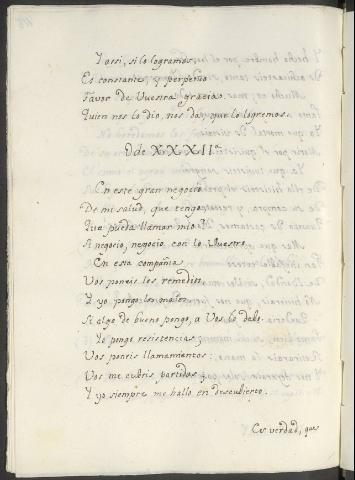 Y assi, si lo logramos,
Es constante, y perpetuo
Favor de Vuestra gracia.
Quien nos lo dio, nos da, que lo logremos.
Ode XXXII.a
En este gran negocio
De mi salud, que tengo,
Que pueda llamar mio?
Si negocio, negocio con lo Vuestro.
En esta compañia
Vos poneis los remedios,
Y yo pongo los males,
Si algo de bueno pongo, a Vos lo debo.
Yo pongo resistencias,
Vos poneis llamamientos:
Vos me cubris partidos,
Y yo siempre me hallo en descubierto.
Es verdad, que